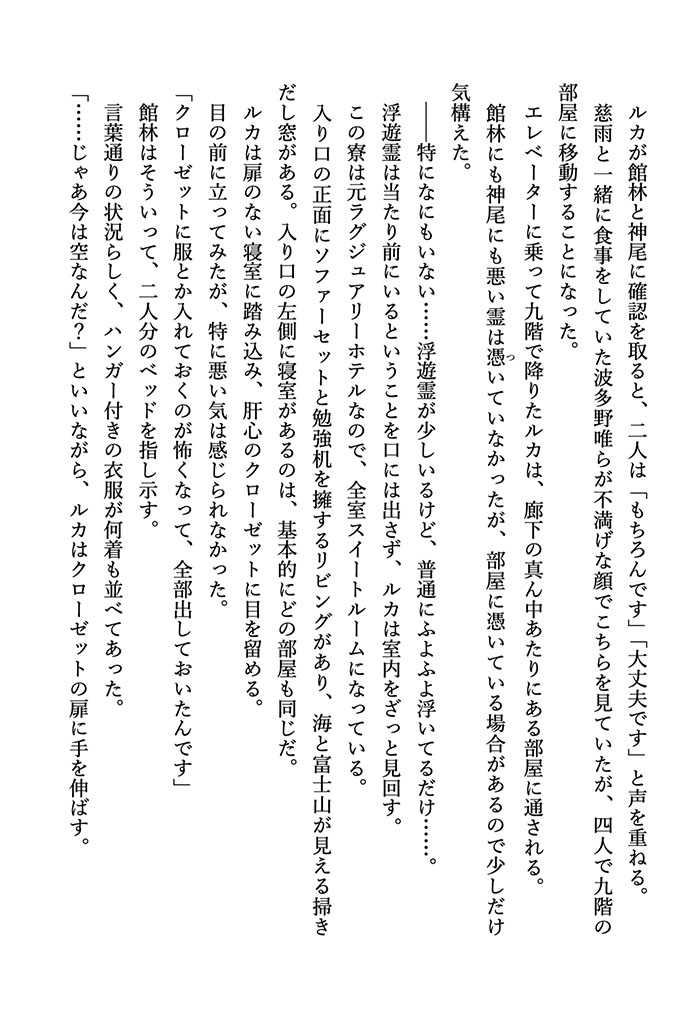 ルカが館林と神尾に確認を取ると、二人は「もちろんです」「大丈夫です」と声を重ねる。
慈雨と一緒に食事をしていた波多野唯らが不満げな顔でこちらを見ていたが、四人で九階の
部屋に移動することになった。
エレベーターに乗って九階で降りたルカは、廊下の真ん中あたりにある部屋に通される。
館林にも神尾にも悪い霊は憑いていなかったが、部屋に憑いている場合があるので少しだけ
気構えた。
――特になにもいない……浮遊霊が少しいるけど、普通にふよふよ浮いてるだけ……。
浮遊霊は当たり前にいるということを口には出さず、ルカは室内をざっと見回す。
この寮は元ラグジュアリーホテルなので、全室スイートルームになっている。
入り口の正面にソファーセットと勉強机を擁するリビングがあり、海と富士山が見える掃き
だし窓がある。入り口の左側に寝室があるのは、基本的にどの部屋も同じだ。
ルカは扉のない寝室に踏み込み、肝心のクローゼットに目を留める。
目の前に立ってみたが、特に悪い気は感じられなかった。
「クローゼットに服とか入れておくのが怖くなって、全部出しておいたんです」
館林はそういって、二人分のベッドを指し示す。
言葉通りの状況らしく、ハンガー付きの衣服が何着も並べてあった。
「……じゃあ今は空なんだ？」といいながら、ルカはクローゼットの扉に手を伸ばす。